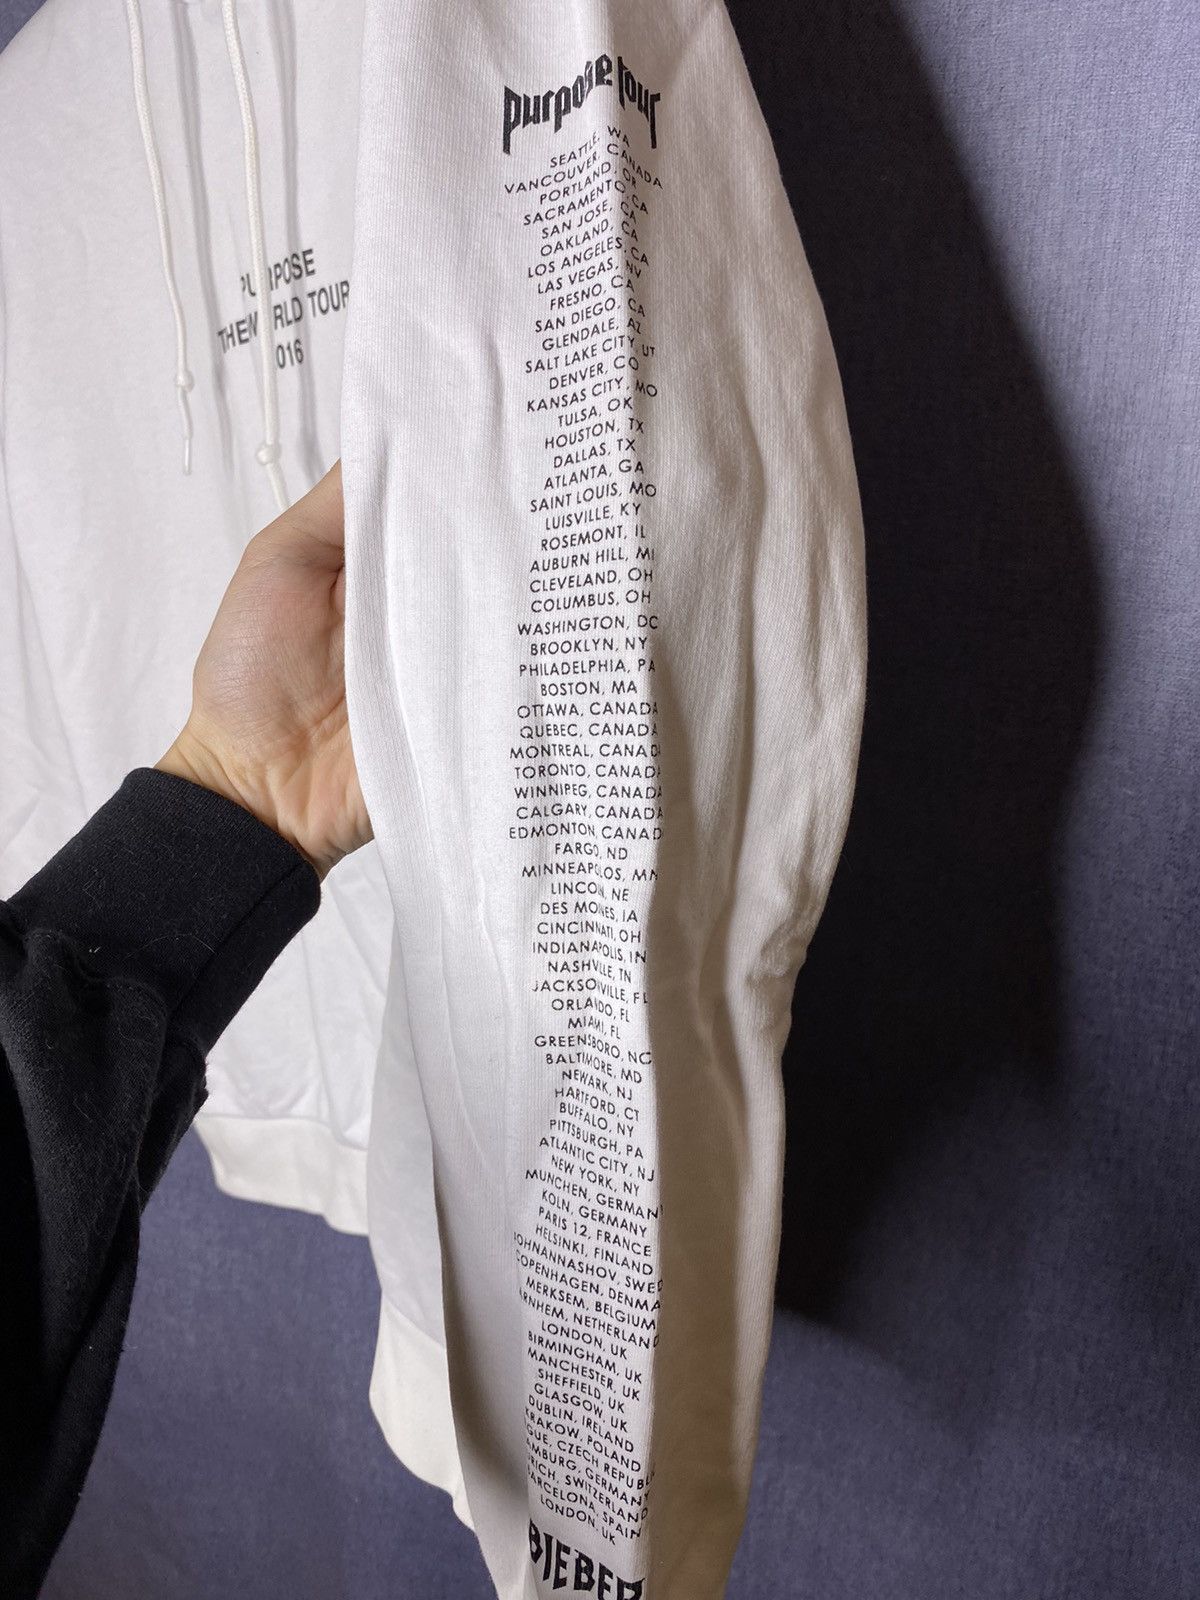 PURPOSE
THE W RLD TOUR
016
purpose tour
SEATTLE, WA
VANCOUVER, CANADA
PORTLAND, OR
SACRAMENTO, CA
SAN JOSE, CA
OAKLAND, CA
LOS ANGELES, CA
LAS VEGAS, NV
FRESNO, CA
SAN DIEGO, CA
GLENDALE, AZ
SALT LAKE CITY, UT
DENVER, CO
KANSAS CITY, MO
TULSA, OK
HOUSTON, TX
DALLAS, TX
ATLANTA, GA
SAINT LOUIS, MO
LUISVILLE, KY
ROSEMONT, IL
AUBURN HILL, MI
CLEVELAND, OH
COLUMBUS, OH
WASHINGTON, DC
BROOKLYN, NY
PHILADELPHIA, PA
BOSTON, MA
OTTAWA, CANADA
QUEBEC, CANADA
MONTREAL, CANAD
TORONTO, CANADA
WINNIPEG, CANADA
CALGARY, CANADA
EDMONTON, CANAD
FARGO, ND
MINNEAPOLOS, MN
LINCON, NE
DES MOINES, IA
CINCINNATI, OH
INDIANAPOLIS, IN
NASHVILLE, TN
JACKSONVILLE, FL
ORLANDO, FL
MIAMI, FL
GREENSBORO, NC
BALTIMORE, MD
NEWARK, NJ
HARTFORD, CT
BUFFALO, NY
PITTSBURGH, PA
ATLANTIC CITY, NJ
NEW YORK, NY
MUNCHEN, GERMANY
KOLN, GERMANY
PARIS 12, FRANCE
HELSINKI, FINLAND
JOHNANNASHOV, SWED
COPENHAGEN, DENMA
MERKSEM, BELGIUM
ARNHEM, NETHERLAND
LONDON, UK
BIRMINGHAM, UK
MANCHESTER, UK
SHEFFIELD, UK
GLASGOW, UK
DUBLIN, IRELAND
KRAKOW, POLAND
GUE, CZECH REPUBL
AMBURG, GERMANY
RICH, SWITZERLAND
BARCELONA, SPAIN
LONDON, UK
BIEBER